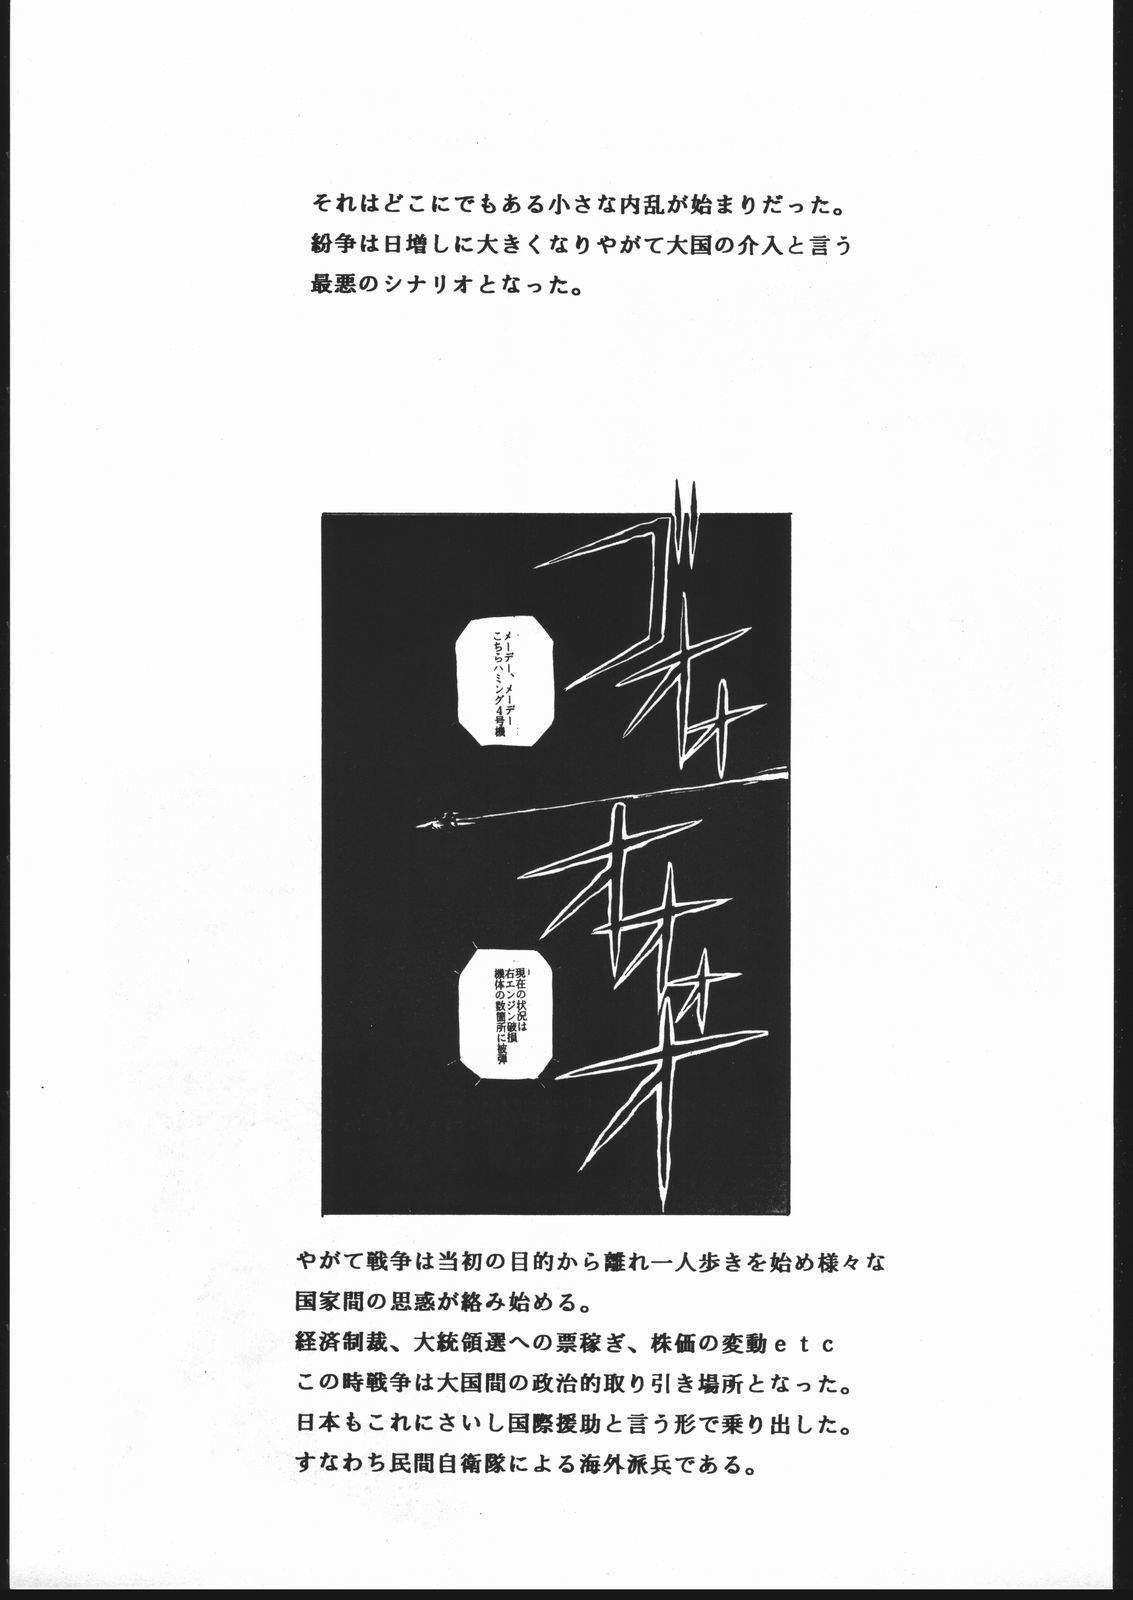 それはどこにでもある小さな内乱が始まりだった。
紛争は日増しに大きくなりやがて大国の介入と言う
最悪のシナリオとなった。
ゴオォ
メーデー、メーデー
こちらハミング4号機
オオォオ
現在の状況は
右エンジン破損
機体の数箇所に被弾
やがて戦争は当初の目的から離れ一人歩きを始め様々な
国家間の思惑が絡み始める。
経済制裁、大統領選への票稼ぎ、株価の変動ｅｔｃ
この時戦争は大国間の政治的取り引き場所となった。
日本もこれにさいし国際援助と言う形で乗り出した。
すなわち民間自衛隊による海外派兵である。